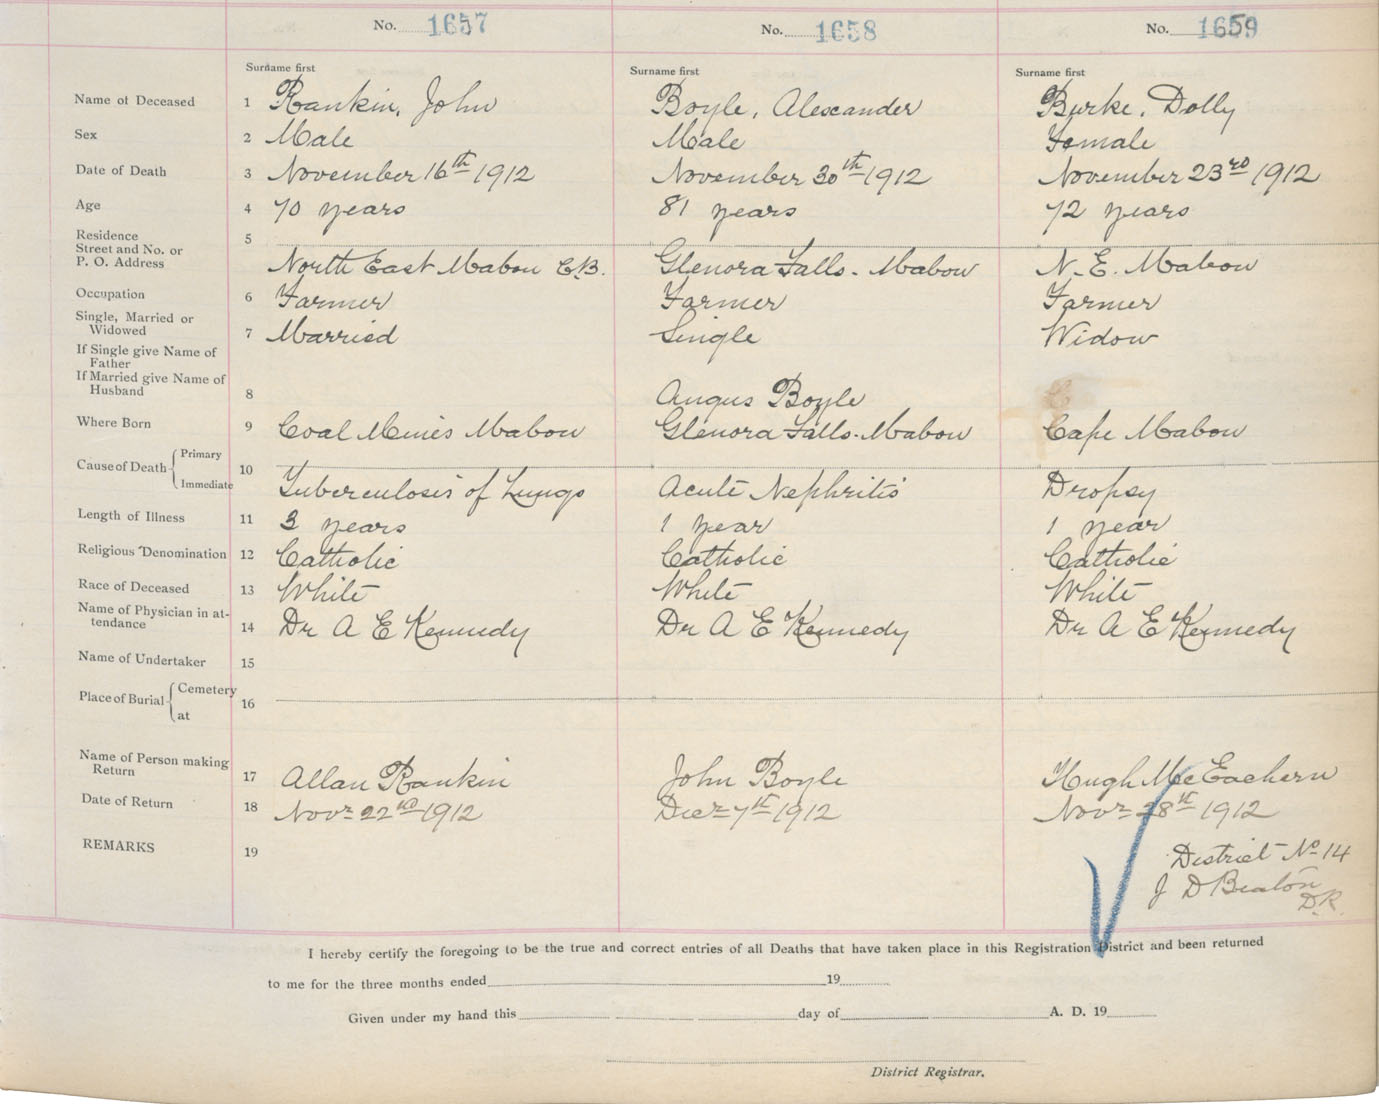 No. 1657 No. 1658 No. 1659
Surname first Surname first Surname first
Name of Deceased 1 Rankin, John Boyle, Alexander Burke, Dolly
Sex 2 Male Male Female
Date of Death 3 November 16th 1912 November 30th 1912 November 23rd 1912
Age 4 70 years 81 years 72 years
Residence 5
Street and No. or
P. O. Address North East Mabou C.B. Glenora Falls. Mabou N. E. Mabou
Occupation 6 Farmer Farmer Farmer
Single, Married or
Widowed 7 Married Single Widow
If Single give Name of
Father
If Married give Name of
Husband 8 Angus Boyle
Where Born 9 Coal Mines Mabou Glenora Falls. Mabou Cape Mabou
Cause of Death Primary
10
Immediate Tuberculosis of Lungs Acute Nephritis Dropsy
Length of Illness 11 3 years 1 year 1 year
Religious Denomination 12 Catholic Catholic Catholic
Race of Deceased 13 White White White
Name of Physician in at-
tendance 14 Dr A E Kennedy Dr A E Kennedy Dr A E Kennedy
Name of Undertaker 15
Place of Burial Cemetery
16
at
Name of Person making
Return 17 Allan Rankin John Boyle Hugh McEachern
Date of Return 18 Novr 22nd 1912 Decr 7th 1912 Novr 28th 1912
REMARKS 19 District No 14
J D Beaton
D.R.
I hereby certify the foregoing to be the true and correct entries of all Deaths that have taken place in this Registration District and been returned
to me for the three months ended 19
Given under my hand this day of A. D. 19
District Registrar.